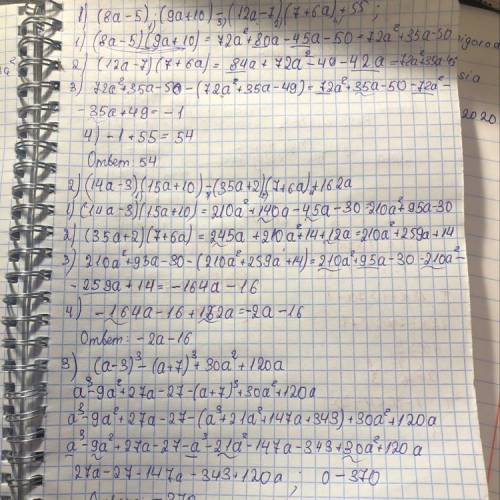 1) (8a-5)(9a+10)-(12a-7)(7+6a)+55;
1) (8a-5)(9a+10)=72a²+80a-45a-50=72a²+35a-50
2) (12a-7)(7+6a)=84a+72a²-49-42a=72a²+35a-49
3) 72a²+35a-50-(72a²+35a-49)=72a²+35a-50-72a²-
-35a+49=-1
4) -1+55=54
Ответ: 54
2) (14a-3)(15a+10)-(35a+2)(7+6a)+162a
1) (14a-3)(15a+10)=210a²+140a-45a-30=210a²+95a-30
2) (35a+2)(7+6a)=245a+210a²+14+12a=210a²+259a+14
3) 210a²+95a-30-(210a²+259a+14)=210a²+95a-30-210a²-
-259a+14=-164a-16
4) -164a-16+162a=-2a-16
Ответ: -2a-16
3) (a-3)³-(a+7)³+30a²+120a
a³-9a²+27a-27-(a+7)³+30a²+120a
a³-9a²+27a-27-(a³+21a²+147a+343)+30a²+120a
a³-9a²+27a-27-a³-21a²-147a-343+30a²+120a
27a-27-147a-343+120a; 0-370
2020